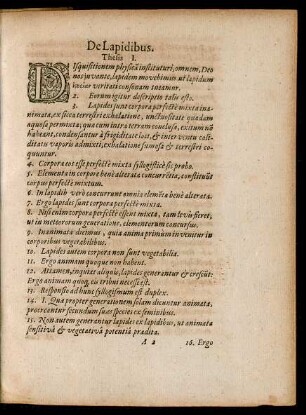 De Lapidibus.
Thesis I.
DIsquisitionem physicã instituturi, omnem, Deo
nos juvante, lapidem movebimus ut lapidum
lucius veritati consonam tractatum.
2. Eorum igitur descriptio talis est.
3. Lapides sunt corpora perfectè mixta ina-
nimata, ex sicca terrestri exhalatione, unctuositate quadam
aquosa permixta; quæ cum intra terram conclusa, exitum nõ
habeant, condensantur à frigiditate loci, & interventu cali-
ditatis vaporis admixti, exhalatione fumosa & terrestri co-
quuntur.
4. Corpora eos esse perfectè mixta syllogisticè sic probo.
5. Elementa in corpore bene alterata concurrẽtia, constituũt
corpus perfectè mixtum.
6. In lapidib. verò concurrunt omnia elemẽta benè alterata.
7. Ergo lapides sunt corpora perfectè mixta.
8. Nisi enim corpora perfectè essent mixta, tam levis fieret,
ut in meteororum generatione, elementorum concursus.
9. Inanimata dicimus, quia anima primùm invenitur in
corporibus vegetabilibus.
10. Lapides autem corpora non sunt vegetabilia.
11. Ergo animam quoque non habent.
12. Attamen, inquies aliquis, lapides generantur & crescũt:
Ergo animam quoq; eis tribui necesse est.
13. Responsio ad hunc syllogismum est duplex.
14. 1. Quæ propter generationem solam dicuntur animata,
prosecantur secundum suas species ex seminibus.
15. Non autem generantur lapides ex lapidibus, ut animata
sensitivâ & vegetativâ potentiâ prædita.
A 2 16. Ergo